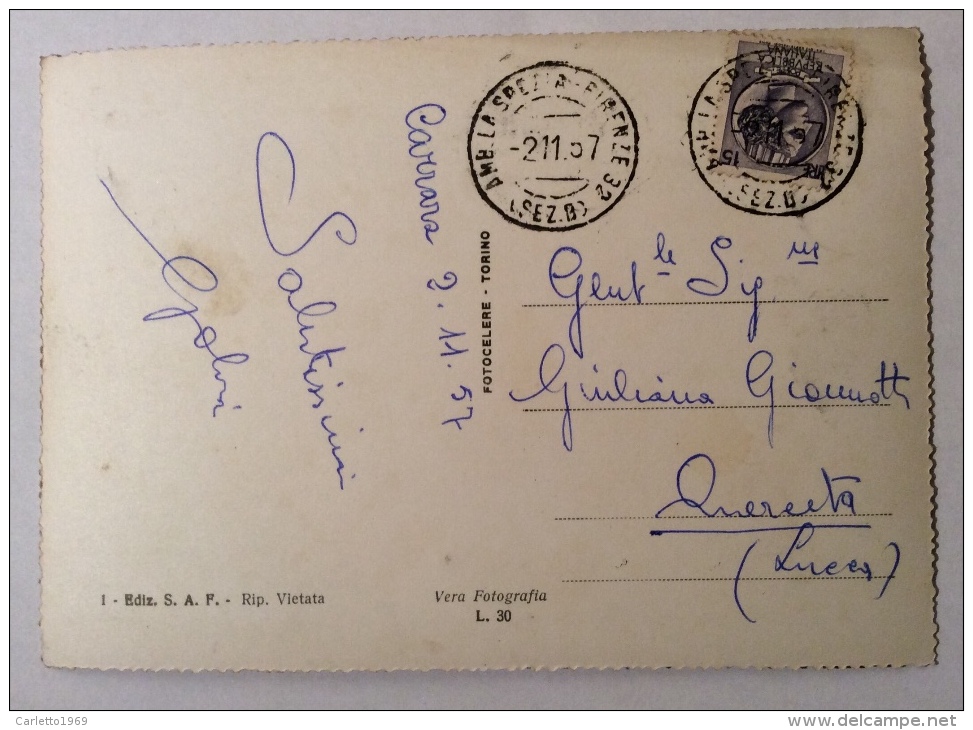 Carrara 2.11.57
Salutissimi
AMB. LA SPEZIA - FIRENZE 32
-2 11.57
(SEZ.D)
REPVBBLICA
ITALIANA
LIRE 15
AMB. LA SPEZIA - FIRENZE 32
(SEZ.D)
FOTOCELERE - TORINO
Gent le Sig. na
Giuliana Giannotti
Querceta
(Lucca)
1 - Ediz. S. A. F. - Rip. Vietata
Vera Fotografia
L. 30
Carletto1969
delcampe.net